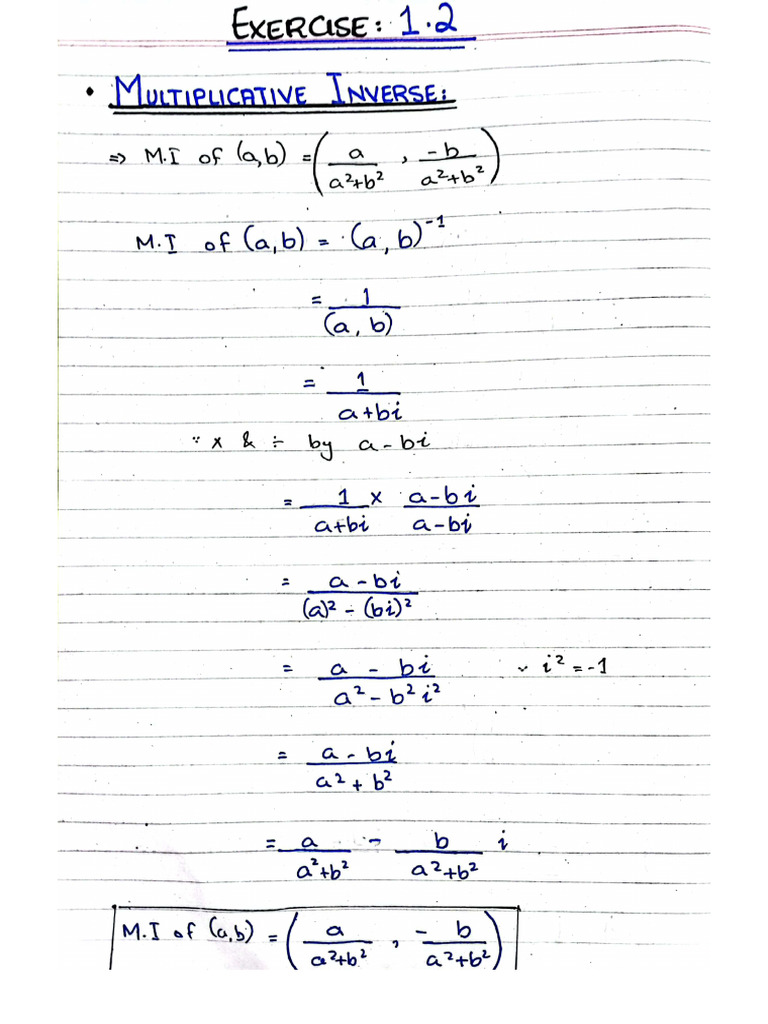 EXERCISE: 1.2
• MULTIPLICATIVE INVERSE:
⇒ M.I of (a,b) = (a/(a²+b²) , -b/(a²+b²))
M.I of (a,b) = (a, b)⁻¹
= 1/(a, b)
= 1/(a+bi)
∵ x & ÷ by a-bi
= 1/(a+bi) x (a-bi)/(a-bi)
= (a-bi)/((a)² - (bi)²)
= (a - bi)/(a² - b² i²) ∵ i² = -1
= (a - bi)/(a² + b²)
= a/(a²+b²) - b/(a²+b²) i
M.I of (a,b) = (a/(a²+b²) , - b/(a²+b²))